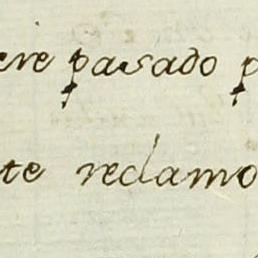 ere pasado p
te reclamo